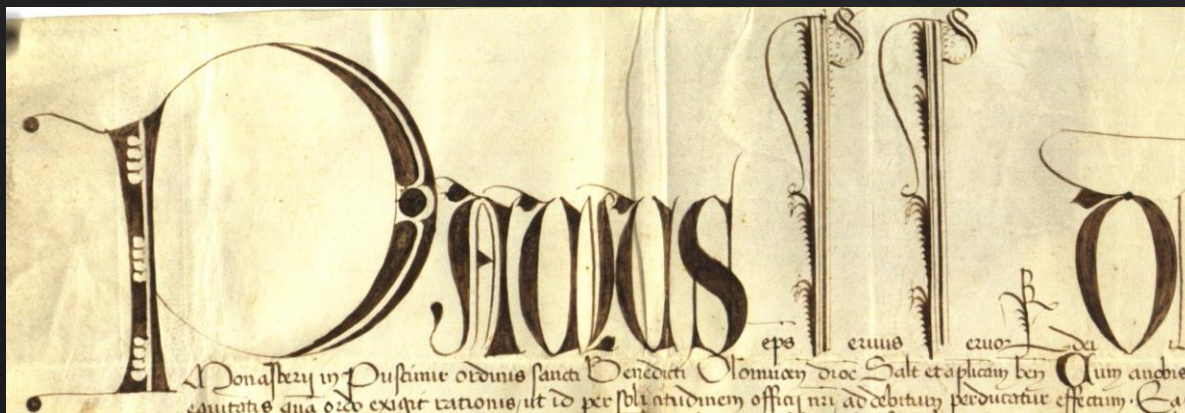 PAULUS eps Servus Servor dei
Monasterij in Pustimir ordinis sancti Benedicti Olomucen dioc Salt et aplicam ben Cum a nobis
equitatis qua ordo exigit rationis ut id per sollicitudinem officij nri ad debitum perducatur effectum. Ea